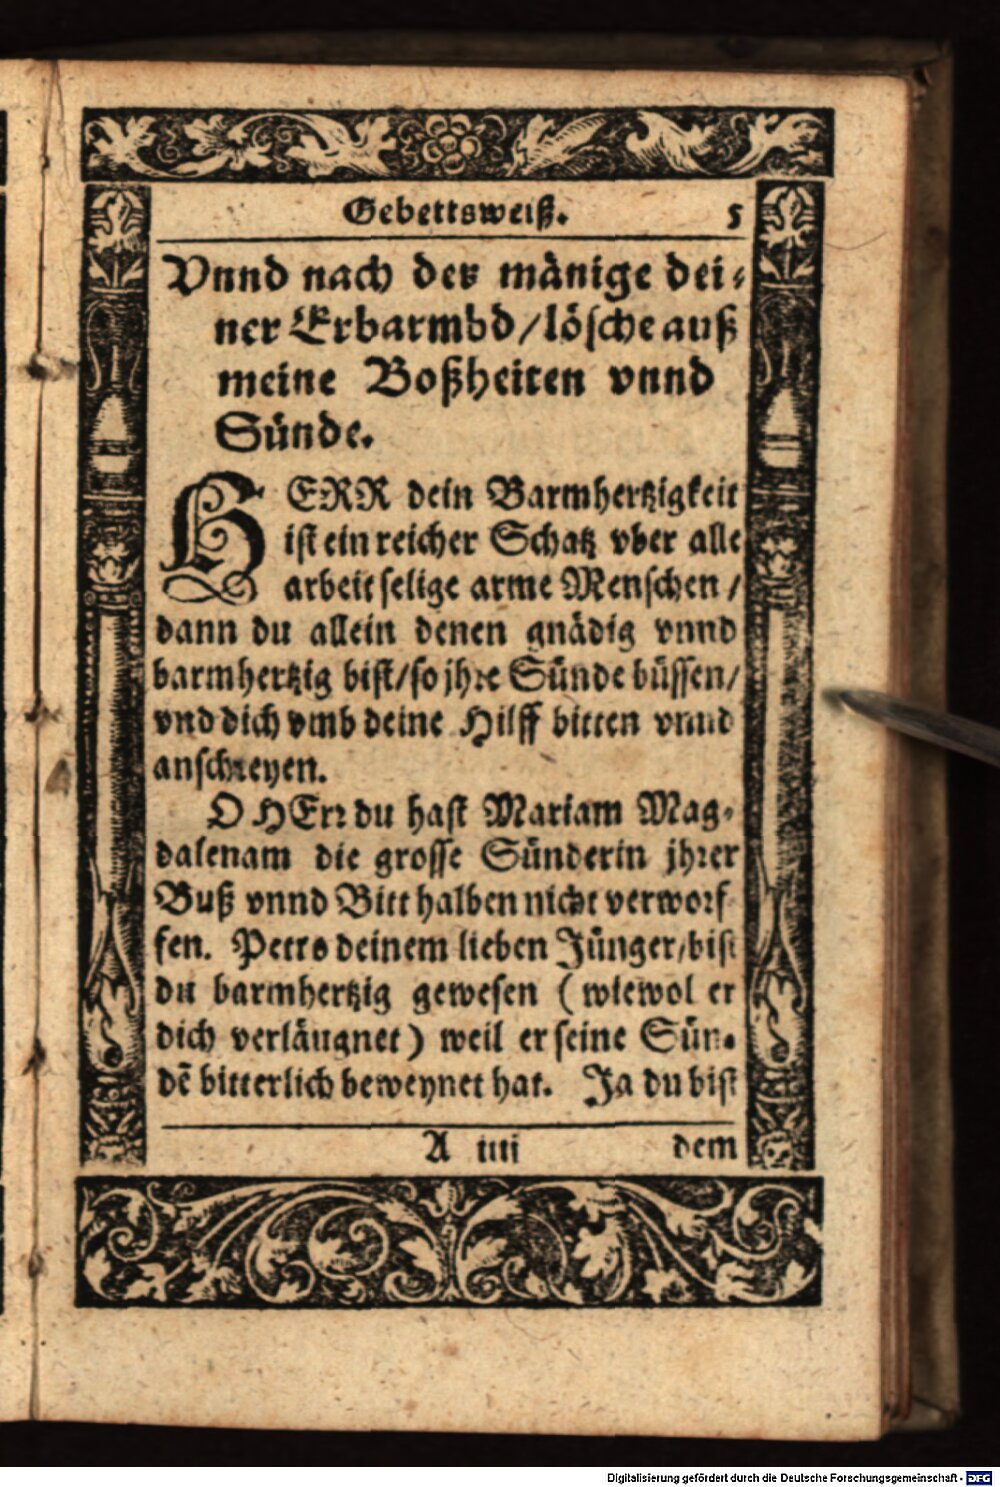 Gebettsweiß. 5
Vnnd nach der mänige dei⸗
ner Erbarmbd/lösche auß
meine Boßheiten vnnd
Sünde.
HERR dein Barmhertzigkeit
ist ein reicher Schatz vber alle
arbeitselige arme Menschen/
dann du allein denen gnädig vnnd
barmhertzig bist/so jhre Sünde büssen/
vnd dich vmb deine Hilff bitten vnnd
anschreyen.
O HErr du hast Mariam Mag⸗
dalenam die grosse Sünderin jhrer
Buß vnnd Bitt halben nicht verworf
fen. Petro deinem lieben Jünger/bist
du barmhertzig gewesen (wiewol er
dich verläugnet) weil er seine Sün⸗
dē bitterlich beweynet hat. Ja du bist
A iiij dem
Digitalisierung gefördert durch die Deutsche Forschungsgemeinschaft - DFG